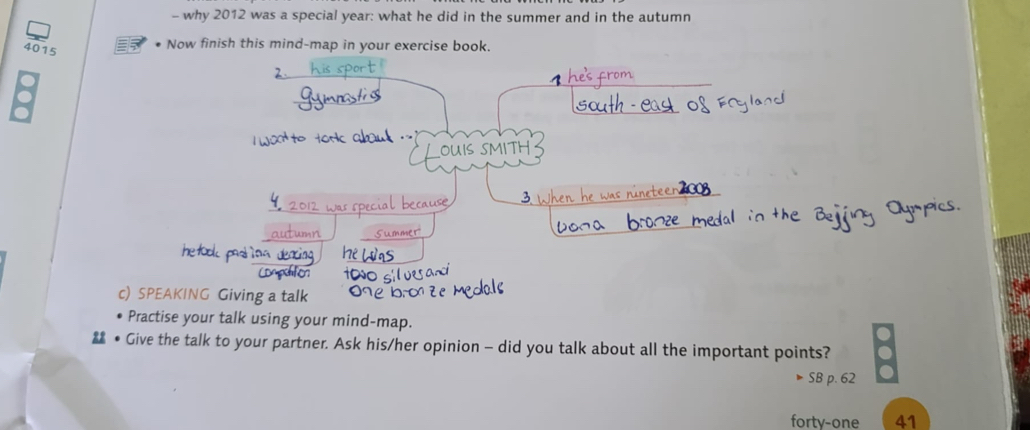 – why 2012 was a special year: what he did in the summer and in the autumn
4015
• Now finish this mind-map in your exercise book.
2. his sport
Gymnastics
1 he's from
south-east of England
I want to talk about ...
LOUIS SMITH
4. 2012 was special because
autumn
he took part in a dancing
summer
he wins
two silver and
one bronze medals
3 When he was nineteen 2008
won a bronze medal in the Bejjing Olympics.
c) SPEAKING Giving a talk
• Practise your talk using your mind-map.
• Give the talk to your partner. Ask his/her opinion – did you talk about all the important points?
► SB p. 62
forty-one 41